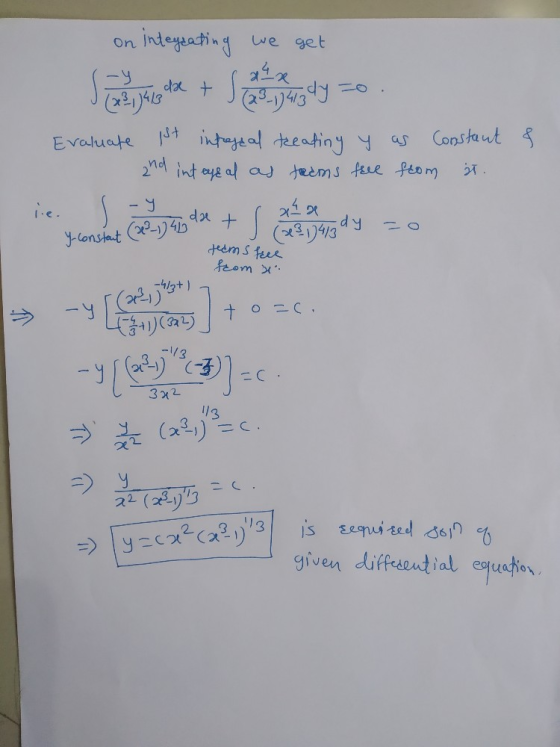 on integrating we get
∫ -y/(x³-1)^4/3 dx + ∫ x⁴-x/(x³-1)^4/3 dy = 0 .
Evaluate 1st integral treating y as constant &
2nd integral as terms free from x.
i.e. ∫ -y/(x³-1)^4/3 dx + ∫ x⁴-x/(x³-1)^4/3 dy = 0
y-constant
terms free
from x.
⇒ -y [ (x³-1)^-4/3+1 / (-4/3+1)(3x²) ] + 0 = c .
-y [ (x³-1)^-1/3 / 3x² ] = c .
⇒ y/x² (x³-1)^1/3 = c .
⇒ y/x²(x³-1)^1/3 = c .
⇒ y = cx²(x³-1)^1/3 is required solⁿ of
given differential equation.